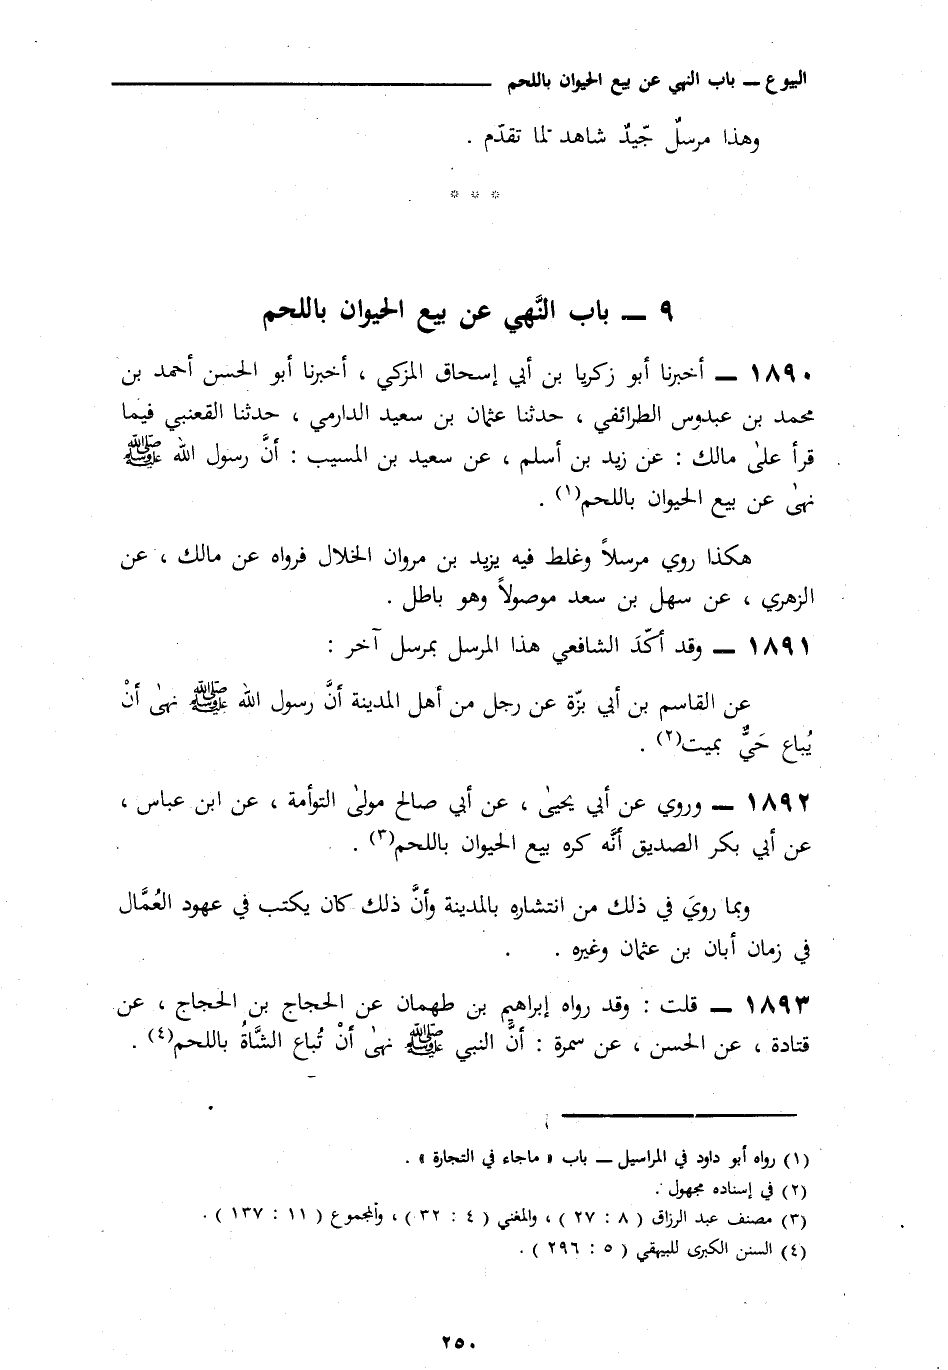 البيوع ــ باب النهي عن بيع الحيوان باللحم
وهذا مرسلٌ جّيدٌ شاهد لما تقدّم .
* * *
٩ ــ باب النَّهي عن بيع الحيوان باللحم
١٨٩٠ ــ أخبرنا أبو زكريا بن أبي إسحاق المزكي ، أخبرنا أبو الحسن أحمد بن
محمد بن عبدوس الطرائفي ، حدثنا عثمان بن سعيد الدارمي ، حدثنا القعنبي فيما
قرأ علىٰ مالك : عن زيد بن أسلم ، عن سعيد بن المسيب : أنَّ رسول الله ﷺ
نهىٰ عن بيع الحيوان باللحم(١) .
هكذا روي مرسلاً وغلط فيه يزيد بن مروان الخلال فرواه عن مالك ، عن
الزهري ، عن سهل بن سعد موصولاً وهو باطل .
١٨٩١ ــ وقد أكّدَ الشافعي هذا المرسل بمرسل آخر :
عن القاسم بن أبي بزّة عن رجل من أهل المدينة أنَّ رسول الله ﷺ نهىٰ أنْ
يُباع حَيٌّ بميت(٢) .
١٨٩٢ ــ وروي عن أبي يحيىٰ ، عن أبي صالح مولىٰ التوأمة ، عن ابن عباس ،
عن أبي بكر الصديق أنَّه كره بيع الحيوان باللحم(٣) .
وبما رويَ في ذلك من انتشاره بالمدينة وأنَّ ذلك كان يكتب في عهود العُمَّال
في زمان أبان بن عثمان وغيره .
١٨٩٣ ــ قلت : وقد رواه إبراهيم بن طهمان عن الحجاج بن الحجاج ، عن
قتادة ، عن الحسن ، عن سمرة : أنَّ النبي ﷺ نهىٰ أنْ تُباع الشَّاةُ باللحم(٤) .
(١) رواه أبو داود في المراسيل ــ باب « ماجاء في التجارة » .
(٢) في إسناده مجهول .
(٣) مصنف عبد الرزاق ( ٨ : ٢٧ ) ، والمغني ( ٤ : ٣٢ ) ، والمجموع ( ١١ : ١٣٧ ) .
(٤) السنن الكبرى للبيهقي ( ٥ : ٢٩٦ ) .
٢٥٠